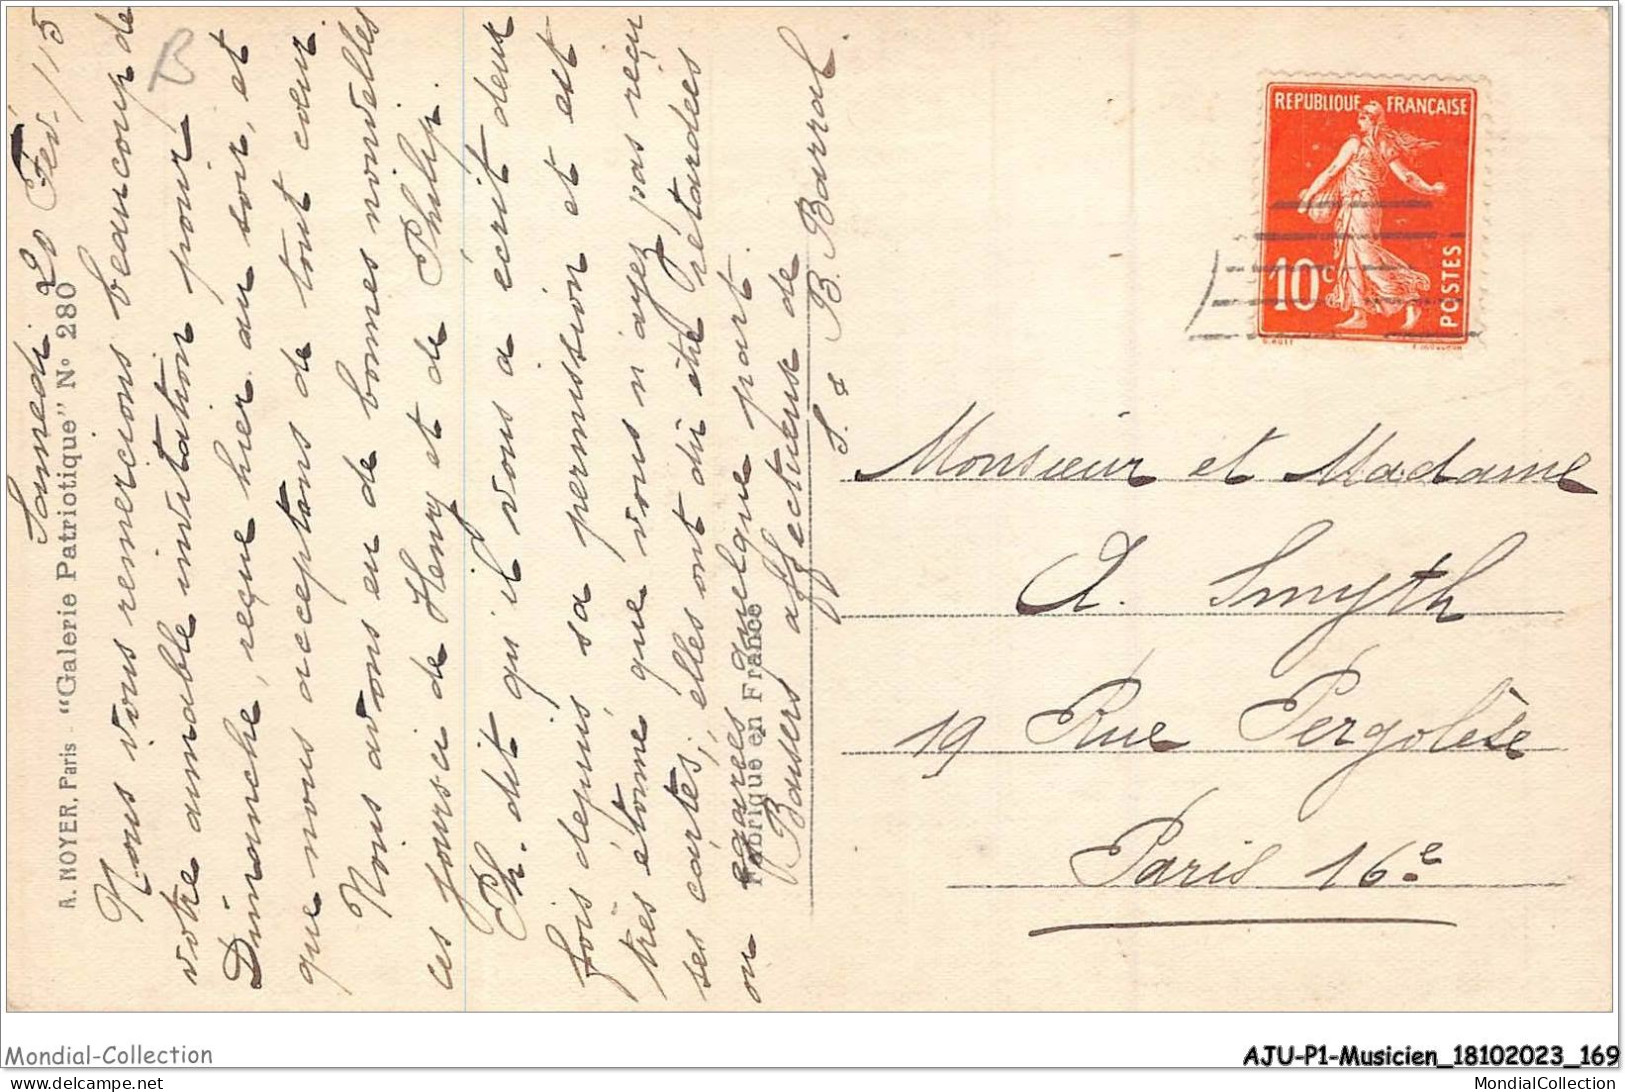 Samedi 20 Fév. /15
A. NOYER, Paris - "Galerie Patriotique" N° 280
Nous vous remercions beaucoup de
votre aimable invitation pour
Dimanche, reçue hier au soir, et
que nous acceptons de tout cœur
Nous avons eu de bonnes nouvelles
ces jours ci de Henry et de Philip.
Ph. dit qu'il vous a écrit deux
fois depuis sa permission et est
très étonné que vous n'ayez pas reçu
ses cartes; elles ont dû être retardées
ou égarées quelque part.
Fabrique en France
Baisers affectueux de
S. & B. Barral.
B
REPUBLIQUE FRANÇAISE
10c
POSTES
O. ROTY
Monsieur et Madame
A. Smyth
19 Rue Pergolèse
Paris 16e
Mondial-Collection
AJU-P1-Musicien_18102023_169
https://www.delcampe.net
MondialCollection